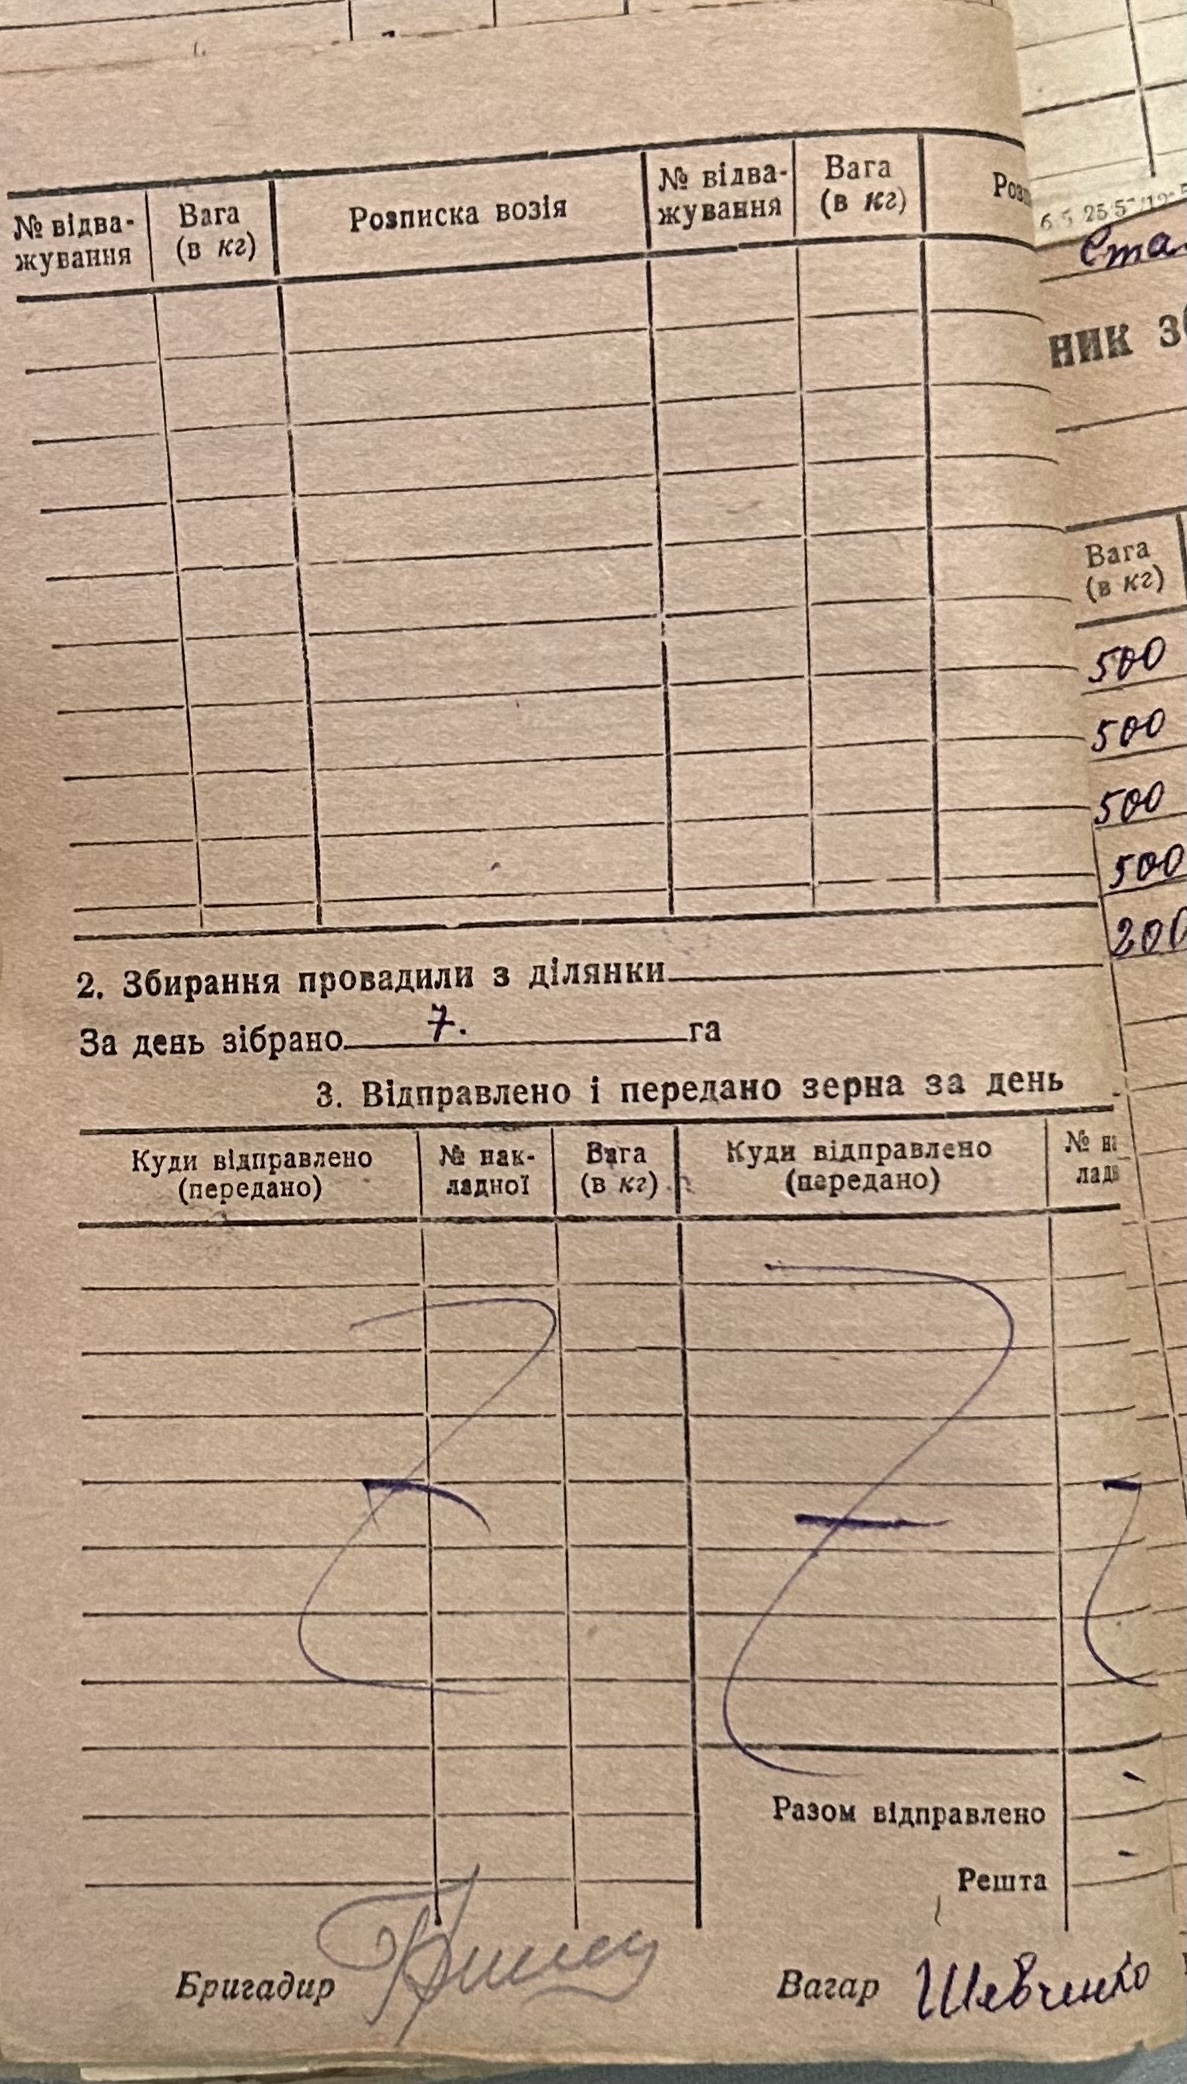 № відва-
жування
Вага
(в кг)
Розписка возія
№ відва-
жування
Вага
(в кг)
Ста
ник
Вага
(в кг)
500
500
500
500
200
2. Збирання провадили з ділянки
За день зібрано 7. га
3. Відправлено і передано зерна за день
Куди відправлено
(передано)
№ нак-
ладної
Вага
(в кг)
Куди відправлено
(передано)
№ н
лад
Разом відправлено
Решта
Бригадир
Вагар Шевченко